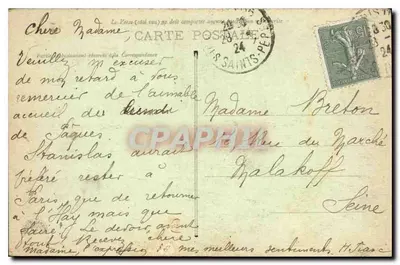 CARTE POSTALE
Chère Madame,
Veuillez m'excuser
de mon retard à vous
remercier de l'aimable
accueil du lundi
de Pâques
Stanislas aurait
préféré rester à
Paris, que de retourner
à l'Hay mais que
faire! Le devoir avant
tout! Recevez chère
madame, l'expression de mes meilleurs sentiments.
Madame Breton
du Marché
Malakoff
Seine
20 30
24